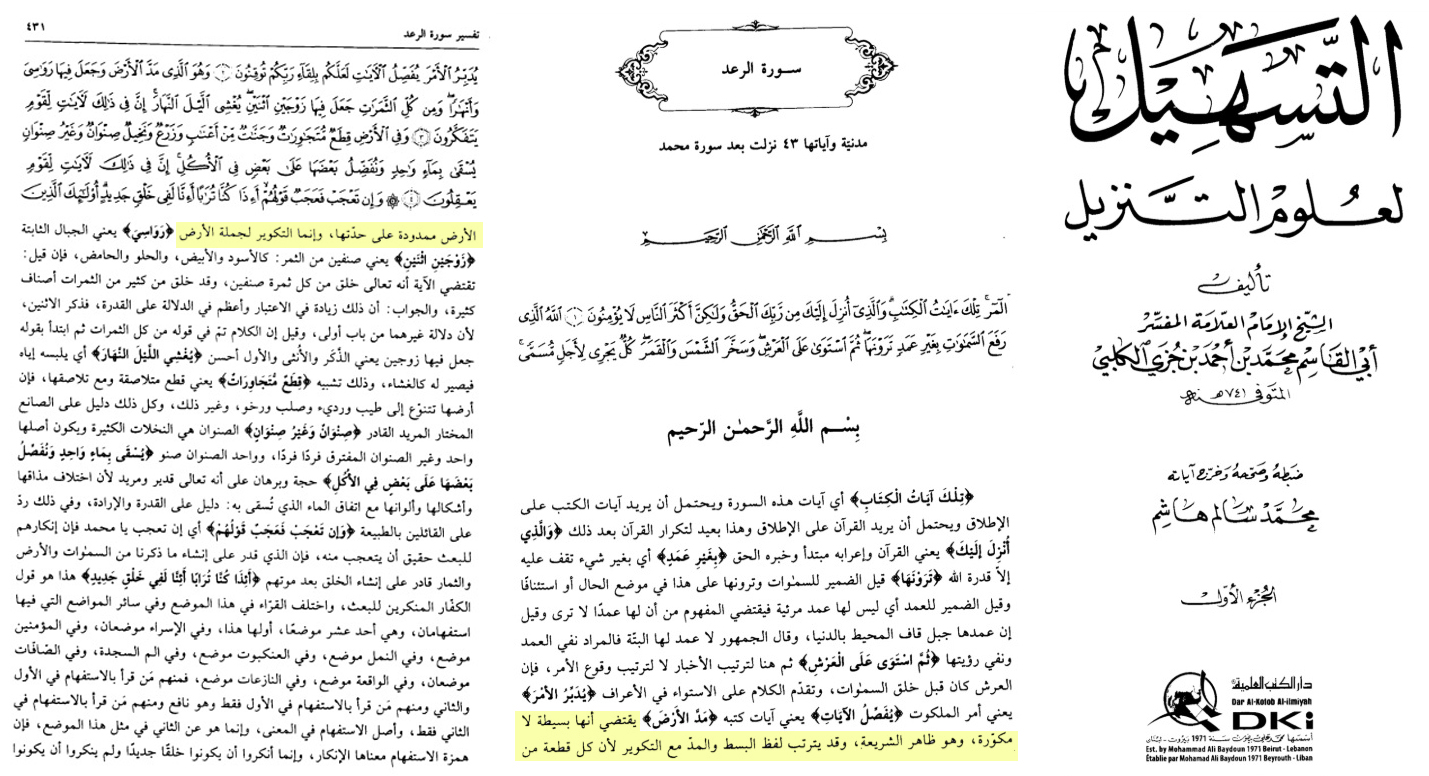 التسهيل
لعلوم التنزيل
تأليف
الشيخ الإمام العلامة المفسر
أبي القاسم محمد بن أحمد بن جزي الكلبي
المتوفى ٧٤١هـ سنة
ضبطه وصححه وخرج آياته
محمد سالم هاشم
الجزء الأول
دار الكتب العلمية
Dar Al-Kotob Al-ilmiyah
DKi
أسسها محمد علي بيضون سنة 1971 بيروت - لبنان
Est. by Mohammad Ali Baydoun 1971 Beirut - Lebanon
Établie par Mohamad Ali Baydoun 1971 Beyrouth - Liban
سورة الرعد
مدنيّة وآياتها ٤٣ نزلت بعد سورة محمد
بِسْمِ اللَّهِ الرَّحْمَٰنِ الرَّحِيمِ
الٓمٓر ۚ تِلْكَ ءَايَٰتُ ٱلْكِتَٰبِ ۗ وَٱلَّذِىٓ أُنزِلَ إِلَيْكَ مِن رَّبِّكَ ٱلْحَقُّ وَلَٰكِنَّ أَكْثَرَ ٱلنَّاسِ لَا يُؤْمِنُونَ ۝١ ٱللَّهُ ٱلَّذِى
رَفَعَ ٱلسَّمَٰوَٰتِ بِغَيْرِ عَمَدٍ تَرَوْنَهَا ۖ ثُمَّ ٱسْتَوَىٰ عَلَى ٱلْعَرْشِ ۖ وَسَخَّرَ ٱلشَّمْسَ وَٱلْقَمَرَ ۖ كُلٌّ يَجْرِى لِأَجَلٍ مُّسَمًّى ۚ
بِسْمِ اللَّهِ الرَّحمٰن الرّحيم
﴿تِلْكَ آيَاتُ الْكِتَابِ﴾ أي آيات هذه السورة ويحتمل أن يريد آيات الكتب على
الإطلاق ويحتمل أن يريد القرآن على الإطلاق وهذا بعيد لتكرار القرآن بعد ذلك ﴿وَالَّذِي
أُنْزِلَ إِلَيْكَ﴾ يعني القرآن وإعرابه مبتدأ وخبره الحق ﴿بِغَيْرِ عَمَدٍ﴾ أي بغير شيء تقف عليه
إلاّ قدرة الله ﴿تَرَوْنَهَا﴾ قيل الضمير للسمٰوات وترونها على هذا في موضع الحال أو استئنافًا
وقيل الضمير للعمد أي ليس لها عمد مرئية فيقتضي المفهوم من أن لها عمدًا لا ترى وقيل
إن عمدها جبل قاف المحيط بالدنيا، وقال الجمهور لا عمد لها البتّة فالمراد نفي العمد
ونفي رؤيتها ﴿ثُمَّ اسْتَوَى عَلَى الْعَرْشِ﴾ ثم هنا لترتيب الأخبار لا لترتيب وقوع الأمر، فإن
العرش كان قبل خلق السمٰوات، وتقدّم الكلام على الاستواء في الأعراف ﴿يُدَبِّرُ الأَمْرَ﴾
يعني أمر الملكوت ﴿يُفَصِّلُ الآيَاتِ﴾ يعني آيات كتبه ﴿مَدَّ الأَرْضَ﴾ يقتضي أنها بسيطة لا
مكوّرة، وهو ظاهر الشريعة، وقد يترتب لفظ البسط والمدّ مع التكوير لأن كل قطعة من
تفسير سورة الرعد ٤٣١
يُدَبِّرُ ٱلْأَمْرَ يُفَصِّلُ ٱلْءَايَٰتِ لَعَلَّكُم بِلِقَآءِ رَبِّكُمْ تُوقِنُونَ ۝٢ وَهُوَ ٱلَّذِى مَدَّ ٱلْأَرْضَ وَجَعَلَ فِيهَا رَوَٰسِىَ
وَأَنْهَٰرًا ۖ وَمِن كُلِّ ٱلثَّمَرَٰتِ جَعَلَ فِيهَا زَوْجَيْنِ ٱثْنَيْنِ ۖ يُغْشِى ٱلَّيْلَ ٱلنَّهَارَ ۚ إِنَّ فِى ذَٰلِكَ لَءَايَٰتٍ لِّقَوْمٍ
يَتَفَكَّرُونَ ۝٣ وَفِى ٱلْأَرْضِ قِطَعٌ مُّتَجَٰوِرَٰتٌ وَجَنَّٰتٌ مِّنْ أَعْنَٰبٍ وَزَرْعٌ وَنَخِيلٌ صِنْوَانٌ وَغَيْرُ صِنْوَانٍ
يُسْقَىٰ بِمَآءٍ وَٰحِدٍ وَنُفَضِّلُ بَعْضَهَا عَلَىٰ بَعْضٍ فِى ٱلْأُكُلِ ۚ إِنَّ فِى ذَٰلِكَ لَءَايَٰتٍ لِّقَوْمٍ
يَعْقِلُونَ ۝٤ ۞ وَإِن تَعْجَبْ فَعَجَبٌ قَوْلُهُمْ أَءِذَا كُنَّا تُرَٰبًا أَءِنَّا لَفِى خَلْقٍ جَدِيدٍ ۗ أُو۟لَٰٓئِكَ ٱلَّذِينَ
الأرض ممدودة على حدّتها، وإنما التكوير لجملة الأرض ﴿رَوَاسِيَ﴾ يعني الجبال الثابتة
﴿زَوْجَيْنِ اثْنَيْنِ﴾ يعني صنفين من الثمر: كالأسود والأبيض، والحلو والحامض، فإن قيل:
تقتضي الآية أنه تعالى خلق من كل ثمرة صنفين، وقد خلق من كثير من الثمرات أصناف
كثيرة، والجواب: أن ذلك زيادة في الاعتبار وأعظم في الدلالة على القدرة، فذكر الاثنين،
لأن دلالة غيرهما من باب أولى، وقيل إن الكلام تمّ في قوله من كل الثمرات ثم ابتدأ بقوله
جعل فيها زوجين يعني الذّكَر والأُنثى والأول أحسن ﴿يُغْشِي اللَّيْلَ النَّهَارَ﴾ أي يلبسه إياه
فيصير له كالغشاء، وذلك تشبيه ﴿قِطَعٌ مُتَجَاوِرَاتٌ﴾ يعني قطع متلاصقة ومع تلاصقها، فإن
أرضها تتنوّع إلى طيب ورديء وصلب ورخو، وغير ذلك، وكل ذلك دليل على الصانع
المختار المريد القادر ﴿صِنْوَانٌ وَغَيْرُ صِنْوَانٍ﴾ الصنوان هي النخلات الكثيرة ويكون أصلها
واحد وغير الصنوان المفترق فردًا فردًا، وواحد الصنوان صنو ﴿يُسْقَى بِمَاءٍ وَاحِدٍ وَنُفَضِّلُ
بَعْضَهَا عَلَى بَعْضٍ فِي الأُكُلِ﴾ حجة وبرهان على أنه تعالى قدير ومريد لأن اختلاف مذاقها
وأشكالها وألوانها مع اتفاق الماء الذي تُسقى به: دليل على القدرة والإرادة، وفي ذلك ردّ
على القائلين بالطبيعة ﴿وَإِن تَعْجَبْ فَعَجَبٌ قَوْلُهُمْ﴾ أي إن تعجب يا محمد فإن إنكارهم
للبعث حقيق أن يتعجب منه، فإن الذي قدر على إنشاء ما ذكرنا من السمٰوات والأرض
والثمار قادر على إنشاء الخلق بعد موتهم ﴿أَئِذَا كُنَّا تُرَابًا أَئِنَّا لَفِي خَلْقٍ جَدِيدٍ﴾ هذا هو قول
الكفّار المنكرين للبعث، واختلف القرّاء في هذا الموضع وفي سائر المواضع التي فيها
استفهامان، وهي أحد عشر موضعًا، أولها هذا، وفي الإسراء موضعان، وفي المؤمنين
موضع، وفي النمل موضع، وفي العنكبوت موضع، وفي الم السجدة، وفي الصّافات
موضعان، وفي الواقعة موضع، وفي النازعات موضع، فمنهم مَن قرأ بالاستفهام في الأول
والثاني ومنهم مَن قرأ بالاستفهام في الأول فقط وهو نافع ومنهم مَن قرأ بالاستفهام في
الثاني فقط، وأصل الاستفهام في المعنى، وإنما هو عن الثاني في مثل هذا الموضع، فإن
همزة الاستفهام معناها الإنكار، وإنما أنكروا أن يكونوا خلقًا جديدًا ولم ينكروا أن يكونوا